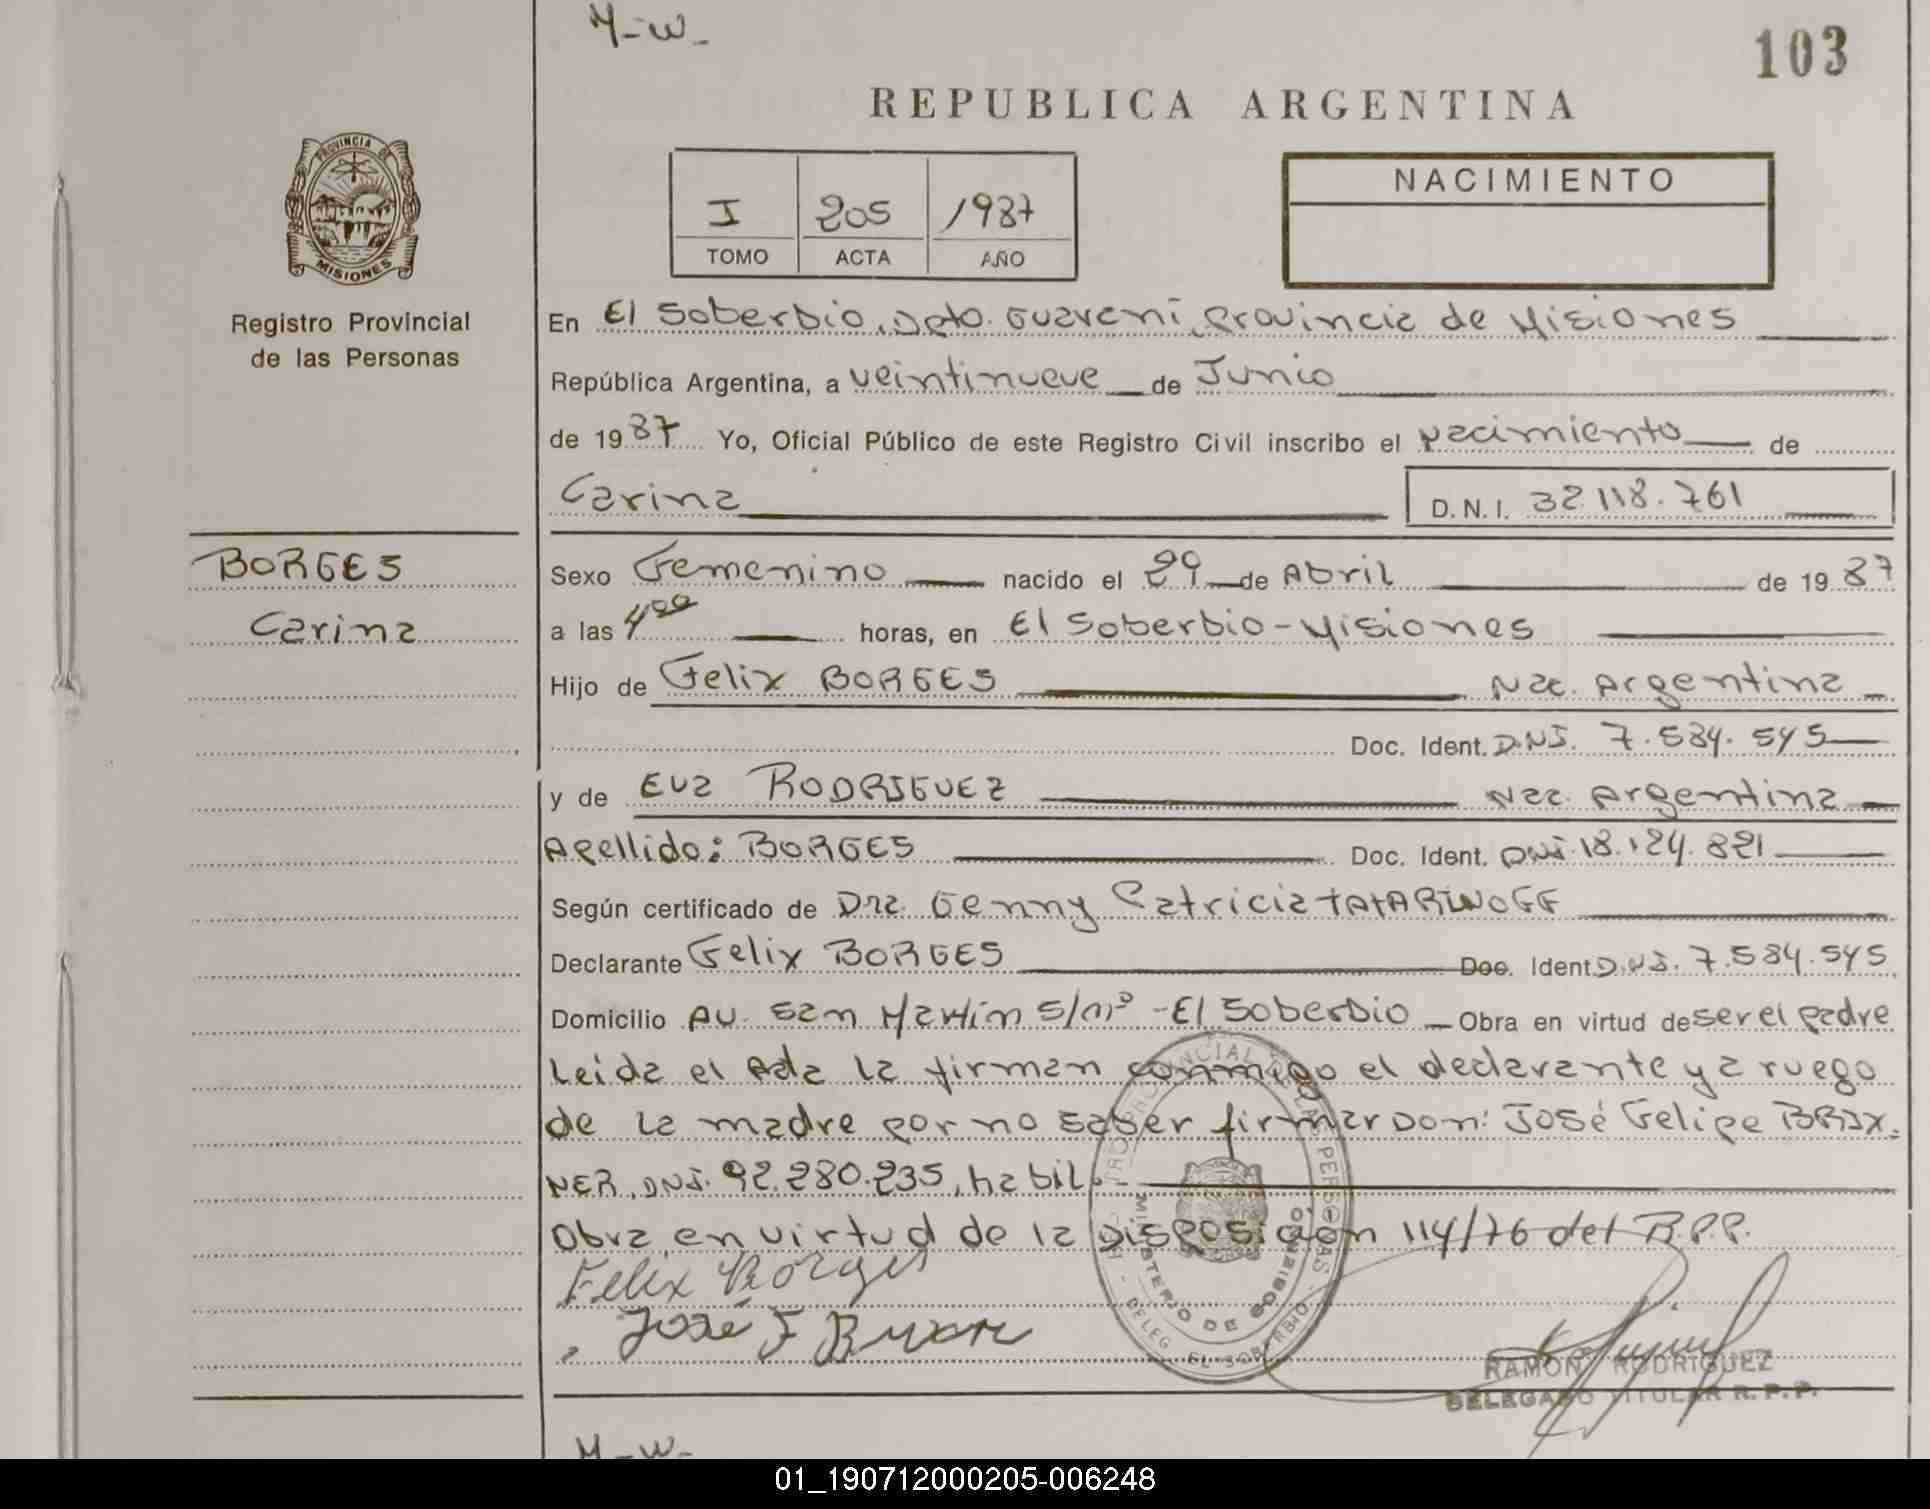 M-W-
103
REPUBLICA ARGENTINA
PROVINCIA DE
MISIONES
Registro Provincial
de las Personas
I 205 1987
TOMO ACTA AÑO
NACIMIENTO
En El Soberbio, Dpto. Guaraní, Provincia de Misiones
República Argentina, a veintinueve de Junio
de 19 87 Yo, Oficial Público de este Registro Civil inscribo el nacimiento de
Carina D.N.I. 32.118.761
BORGES
Carina
Sexo Femenino nacido el 29 de Abril de 19 87
a las 4 00 horas, en El Soberbio - Misiones
Hijo de Felix BORGES Nac. Argentina
Doc. Ident. D.N.I. 7.584.545
y de Eva RODRIGUEZ Nac. Argentina
Apellido: BORGES Doc. Ident. DNI. 18.124.821
Según certificado de Dra. Genny Patricia TATARINOFF
Declarante Felix BORGES Doc. Ident D.N.I. 7.584.545
Domicilio Av. San Martín S/nº - El Soberbio Obra en virtud de ser el padre
Leida el Acta la firman conmigo el declarante y a ruego
de la madre por no saber firmar Don: José Felipe BRIX-
NER, DNI. 92.280.235, habil.-
Obra en virtud de la Disposición 114/76 del R.P.P.
Felix Borges
José F Brixner
PROVINCIAL DE LAS PERSONAS
MINISTERIO DE GOBIERNO
DELEG. EL SOBERBIO
RAMON RODRIGUEZ
DELEGADO TITULAR R.P.P.
M-W-
01_190712000205-006248